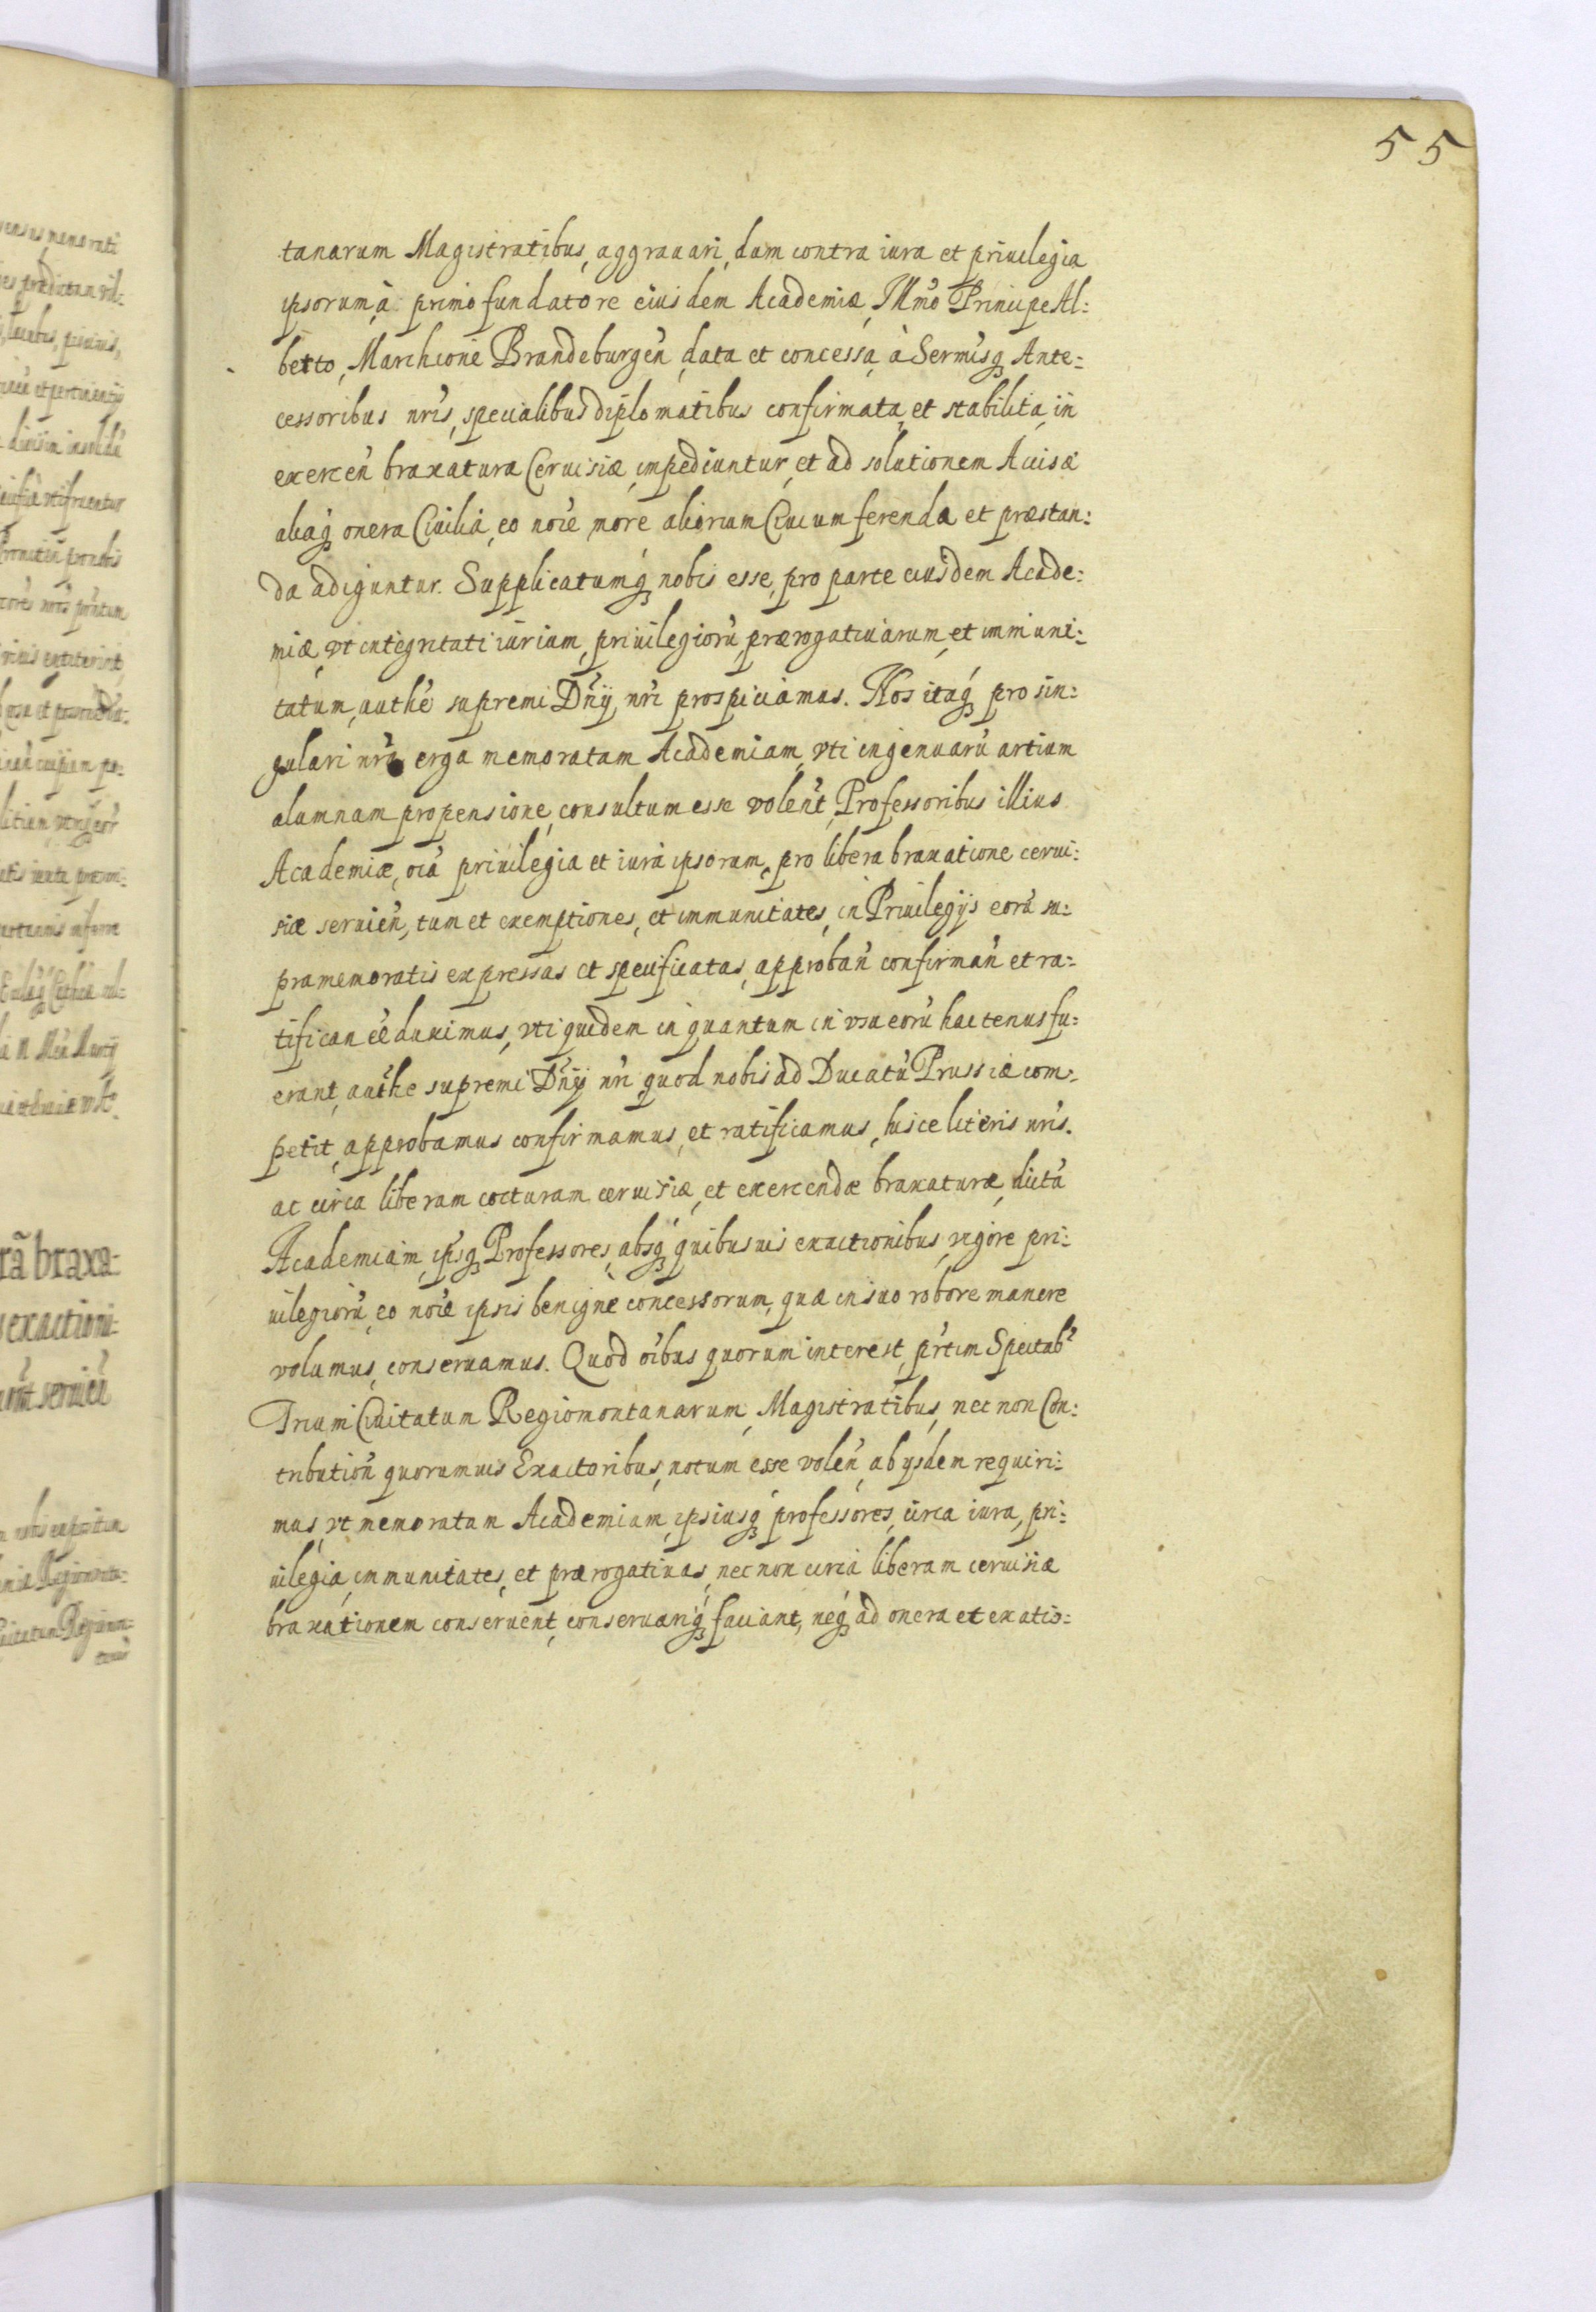 55
tanarum Magistratibus, aggrauari, dum contra iura et priuilegia
ipsorum, à primo fundatore eiusdem Academiæ, Illmo Principe Al:
berto, Marchione Brandeburgeñ, data et concessa, à Sermisq Ante:
cessoribus nr̃is, specialibus diplomatibus confirmata, et stabilita, in
exerceñ braxatura Ceruisiæ, impediuntur, et ad solutionem Acisæ
aliaq onera Ciuilia, eo noĩe more aliorum Ciuium ferenda et præstan:
da adiguntur. Supplicatumq nobis esse, pro parte eiusdem Acade:
miæ, vt integritati iurium, priuilegiorũ, prærogatiuarum, et immuni:
tatum, authẽ supremi Dñij, nr̃i prospiciamus. Nos itaq pro sin:
gulari nr̃a erga memoratam Academiam, vti ingenuarũ artium
alumnam propensione, consultum esse voleñt, Professoribus illius
Academiæ, oĩa priuilegia et iura ipsorum, pro libera braxatione cerui:
siæ seruieñ, tum et exemptiones, et immunitates, in Priuilegijs eorũ su:
pramemoratis expressas et specificatas, approbañ confirmañ et ra:
tifican eẽ duximus, vti quidem in quantum in vsu eorũ hactenus fu:
erant, authe supremi Dñij nr̃i quod nobis ad Ducatũ Prussiæ com:
petit, approbamus confirmamus, et ratificamus, hisce literis nr̃is.
ac circa liberam cocturam ceruisiæ, et exercendæ braxaturæ, dictã
Academiam, ip̃sq Professores, absq quibusuis exactionibus, vigore pri:
uilegiorũ, eo noĩe ipsis benignè concessorum, quæ in suo robore manere
volumus, conseruamus. Quod oĩbus quorum interest, pr̃tim Spectab
Trium Ciuitatum Regiomontanarum, Magistratibus, nec non Con:
tributioñ quorumuis Exactoribus, notum esse voleñ, ab ijsdem requiri:
mus, vt memoratam Academiam, ipsiusq professores, circa iura, pri:
uilegia, immunitates, et prærogatiuas, nec non circa liberam ceruisiæ
braxationem conseruent, conseruariq faciant, neq ad onera et exatio: